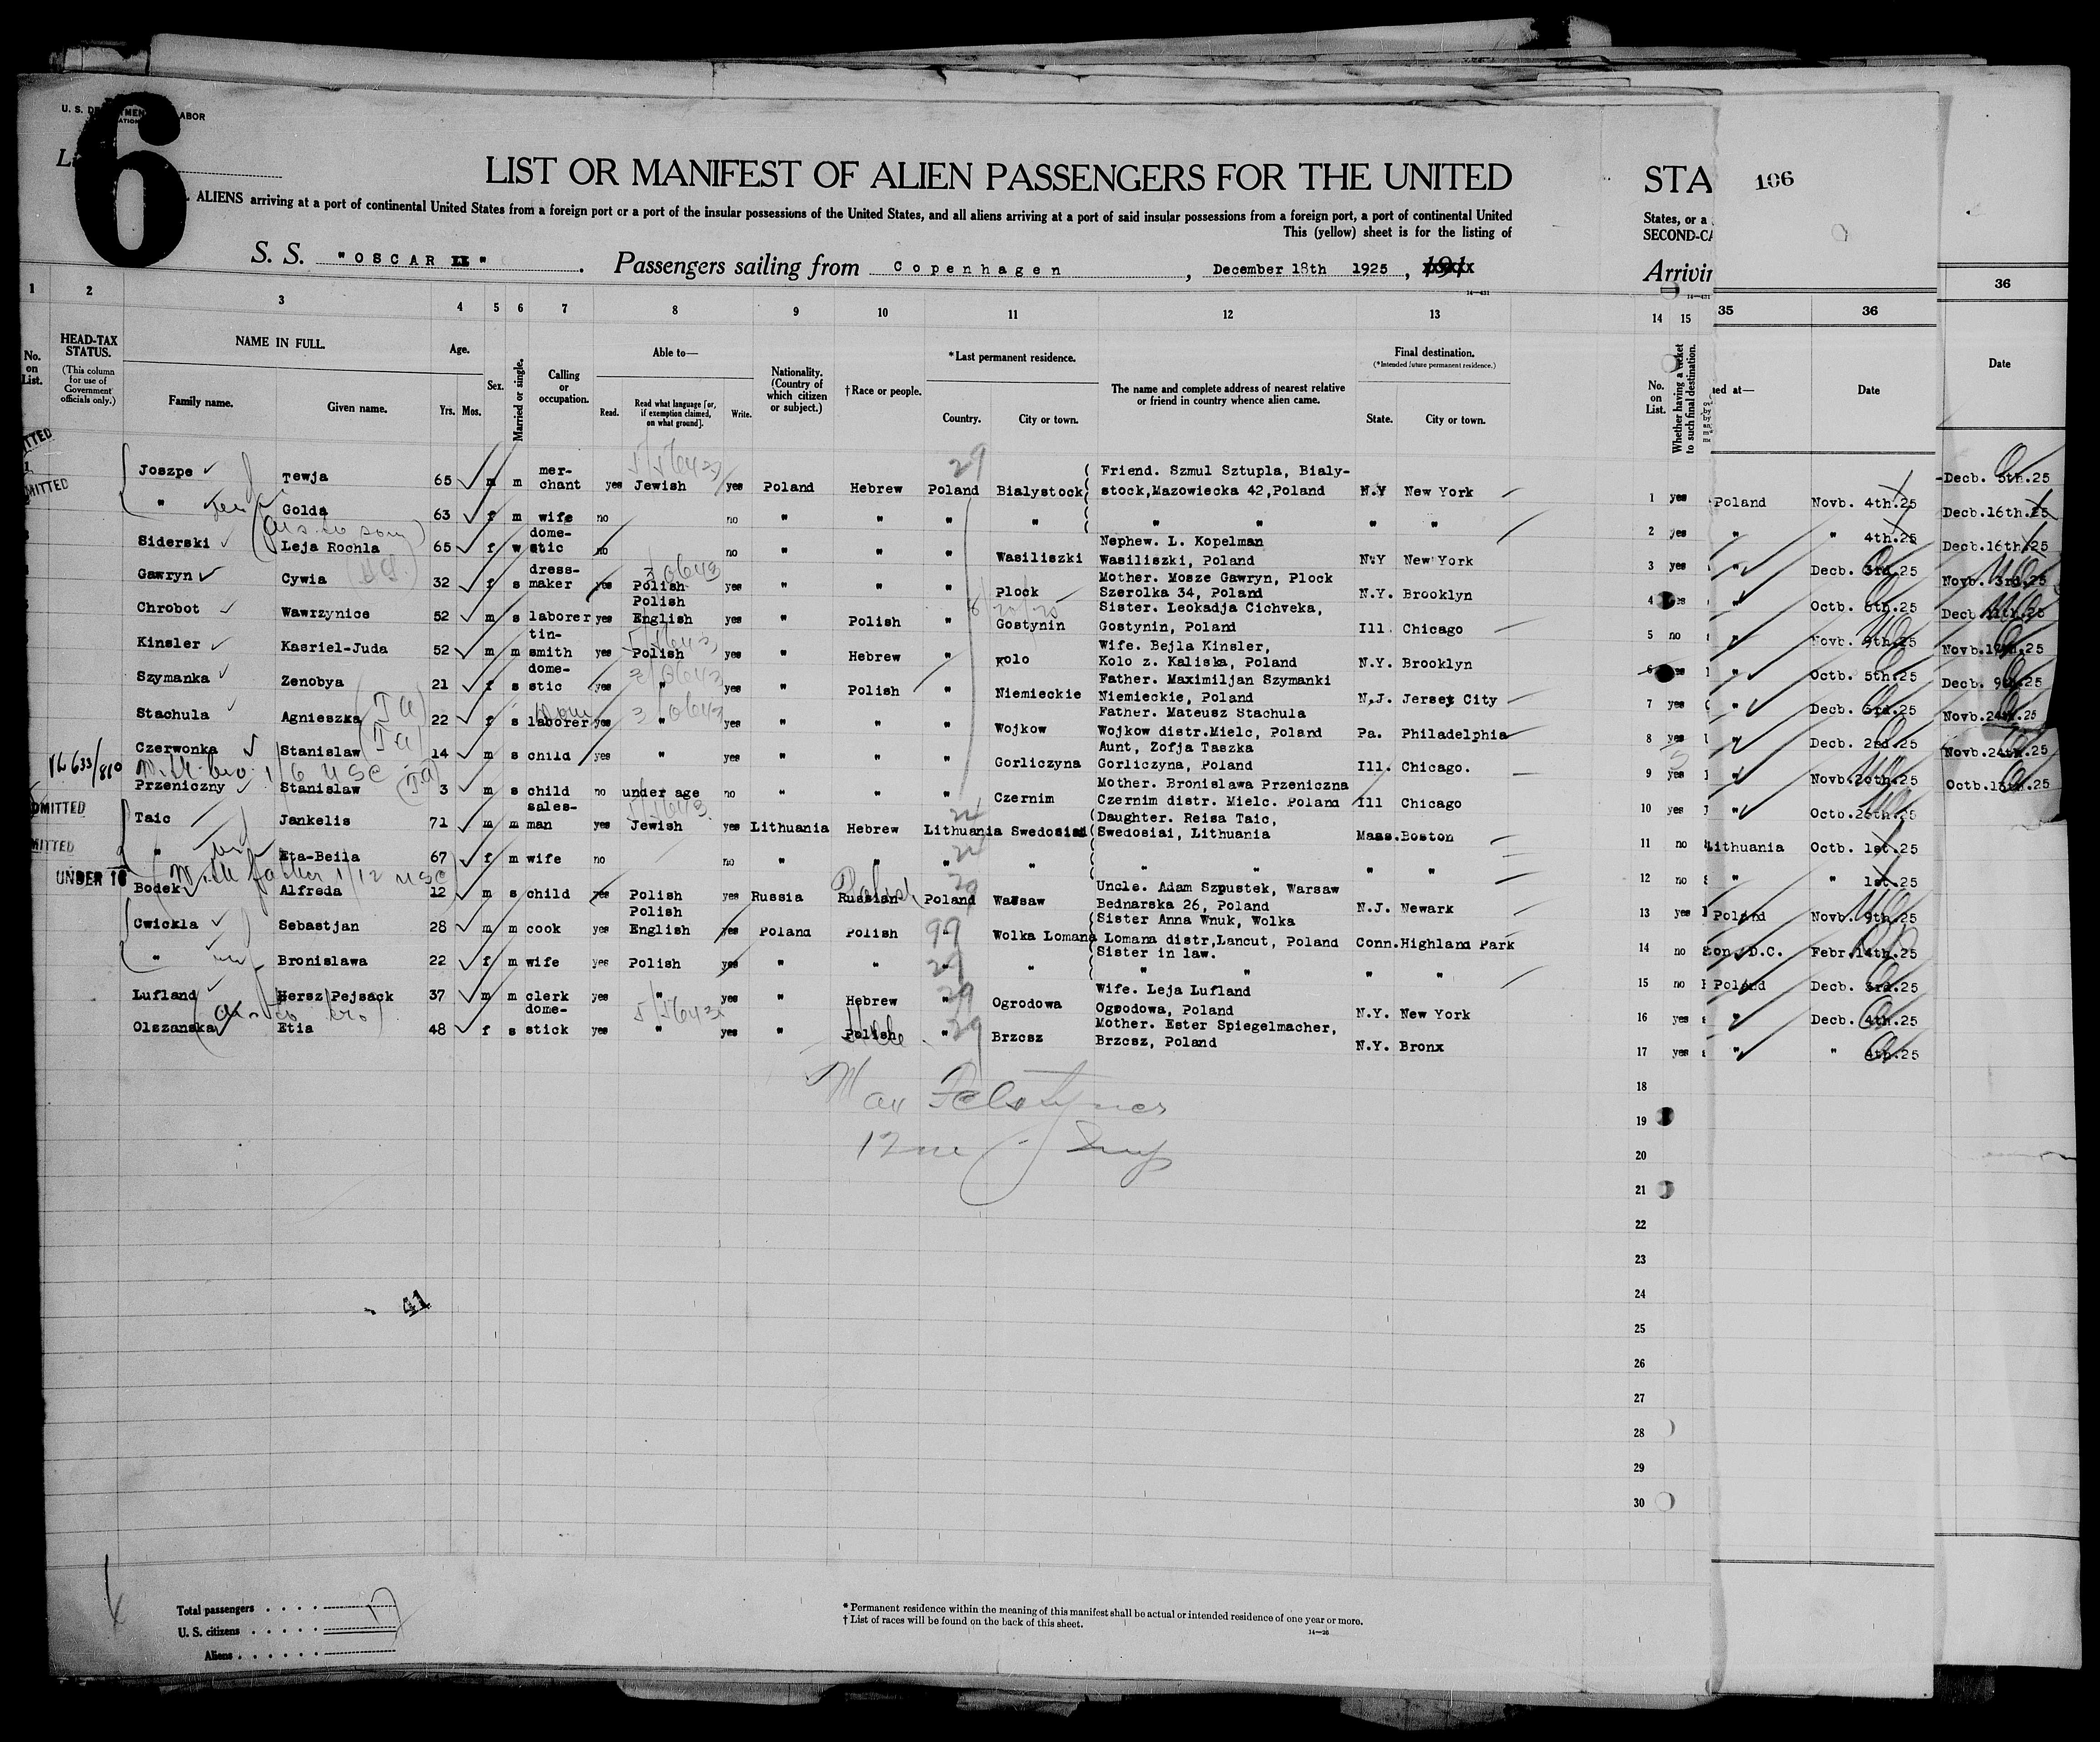 U. S. DEPARTMENT LABOR
6
LIST OR MANIFEST OF ALIEN PASSENGERS FOR THE UNITED STA
106
ALIENS arriving at a port of continental United States from a foreign port or a port of the insular possessions of the United States, and all aliens arriving at a port of said insular possessions from a foreign port, a port of continental United States, or a
This (yellow) sheet is for the listing of SECOND-CA
S. S. "OSCAR II". Passengers sailing from Copenhagen, December 18th 1925, Arrivin
1 2 3 4 5 6 7 8 9 10 11 12 13 14 15 35 36 36
No. on List.
HEAD-TAX STATUS.
(This column for use of Government officials only.)
NAME IN FULL.
Family name. Given name.
Age.
Yrs. Mos.
Sex.
Married or single.
Calling or occupation.
Able to—
Read. Read what language [or, if exemption claimed, on what ground]. Write.
Nationality. (Country of which citizen or subject.)
†Race or people.
*Last permanent residence.
Country. City or town.
The name and complete address of nearest relative or friend in country whence alien came.
Final destination.
(*Intended future permanent residence.)
State. City or town.
No. on List.
Whether having a ticket to such final destination.
ed at— Date Date
Joszpe Tewja 65 m m merchant yes Jewish yes Poland Hebrew Poland Bialystock Friend. Szmul Sztupla, Bialystock,Mazowiecka 42,Poland N.Y New York 1 yes Poland Novb. 4th.25 Decb. 5th.25
" Golda 63 f m wife no no " " " " " " " " 2 yes " " 4th.25 Decb.16th.25
Siderski Leja Rochla 65 f w domestic no no " " " Wasiliszki Nephew. L. Kopelman Wasiliszki, Poland N.Y New York 3 yes " Decb. 3rd.25 Decb.16th.25
Gawryn Cywia 32 f s dressmaker yes Polish yes " " " Plock Mother. Mosze Gawryn, Plock Szerolka 34, Poland N.Y. Brooklyn 4 yes " Octb. 6th.25 Novb. 3rd.25
Chrobot Wawrzynice 52 m s laborer yes Polish English yes " Polish Gostynin Sister. Leokadja Cichveka, Gostynin, Poland Ill. Chicago 5 no " Novb. 9th.25 Decb 11th.25
Kinsler Kasriel-Juda 52 m m tinsmith yes Polish yes " Hebrew " Kolo Wife. Bejla Kinsler, Kolo z. Kaliska, Poland N.Y. Brooklyn 6 yes " Octb. 5th.25 Novb.17th.25
Szymanka Zenobya 21 f s domestic yes " yes " Polish " Niemieckie Father. Maximiljan Szymanki Niemieckie, Poland N.J. Jersey City 7 yes " Decb. 3rd.25 Decb. 9th.25
Stachula Agnieszka 22 f s laborer yes " yes " " " Wojkow Father. Mateusz Stachula Wojkow distr.Mielc, Poland Pa. Philadelphia 8 yes " Decb. 2nd.25 Novb.24th.25
Czerwonka Stanislaw 14 m s child yes " yes " " " Gorliczyna Aunt, Zofja Taszka Gorliczyna, Poland Ill. Chicago. 9 yes " Novb.20th.25 Novb.24th.25
Przeniczny Stanislaw 3 m s child no under age no " " " Czernim Mother. Bronislawa Przeniczna Czernim distr. Mielc. Poland Ill Chicago 10 yes " Octb.26th.25 Octb.13th.25
ADMITTED
Taic Jankelis 71 m m salesman yes Jewish yes Lithuania Hebrew Lithuania Swedosiai Daughter. Reisa Taic, Swedosiai, Lithuania Mass. Boston 11 no Lithuania Octb. 1st.25
" Eta-Beila 67 f m wife no no " " " " " " " " 12 no " " 1st.25
UNDER 16
With father 1/12 USC
Bodek Alfreda 12 m s child yes Polish yes Russia Russian Poland Warsaw Uncle. Adam Szpustek, Warsaw Bednarska 26, Poland N.J. Newark 13 yes Poland Novb. 9th.25
Cwickla Sebastjan 28 m m cook yes Polish English yes Poland Polish " Wolka Lomana Sister Anna Wnuk, Wolka Lomana distr,Lancut, Poland Conn. Highland Park 14 no on, D.C. Febr.14th.25
" Bronislawa 22 f m wife yes Polish yes " " " " Sister in law. " " " " 15 no Poland Decb. 3rd.25
Lufland Hersz Pejsack 37 m m clerk yes " yes " Hebrew " Ogrodowa Wife. Leja Lufland Ogrodowa, Poland N.Y. New York 16 yes " Decb. 4th.25
Olszanska Etia 48 f s domestick yes " yes " Polish " Brzcsz Mother. Ester Spiegelmacher, Brzcsz, Poland N.Y. Bronx 17 yes " " 4th.25
18
19
20
21
22
23
24
41
25
26
27
28
29
30
Total passengers 17
U. S. citizens
Aliens
* Permanent residence within the meaning of this manifest shall be actual or intended residence of one year or more.
† List of races will be found on the back of this sheet.
14—26